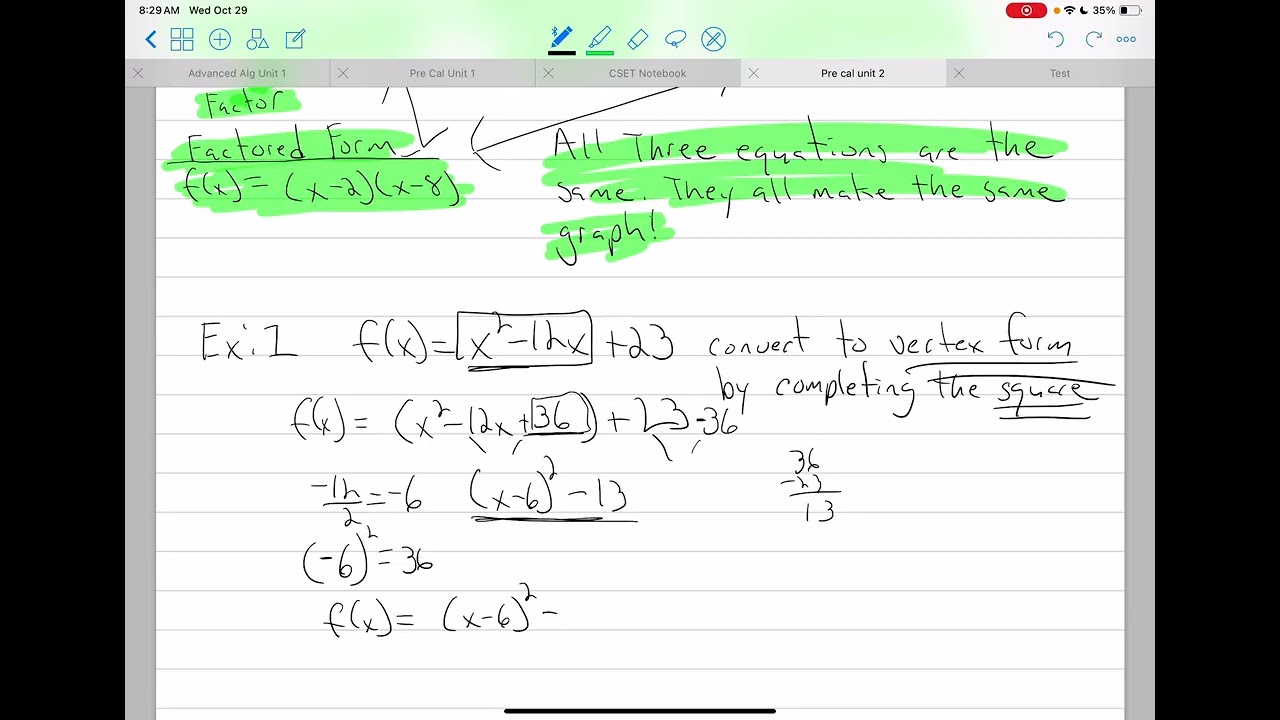 8:29 AM Wed Oct 29
35%
Advanced Alg Unit 1
Pre Cal Unit 1
CSET Notebook
Pre cal unit 2
Test
Factor
Factored Form
f(x) = (x-2)(x-8)
All Three equations are the
same. They all make the same
graph!
Ex: 1 f(x) = x²-12x +23 convert to vertex form
by completing the square
f(x) = (x²-12x+36) + 23 -36
-12/2 = -6 (x-6)² -13
36
-23
13
(-6)² = 36
f(x) = (x-6)² -